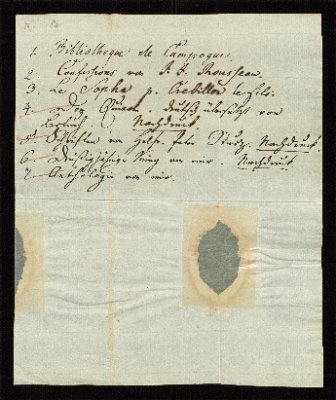 1. Bibliotheque de Campagne.
2. Confessions von J. J. Rousseau.
3. Le Sopha p. Crebillon le fils.
4. Don Quixote. deutsch übersetzt von
Bertuch. Nachdruck.
5. Schriften von Helfr. Peter Sturz. Nachdruck.
6. Dreißigjähriger Krieg von mir. Nachdruck.
7. Anthologie von mir.